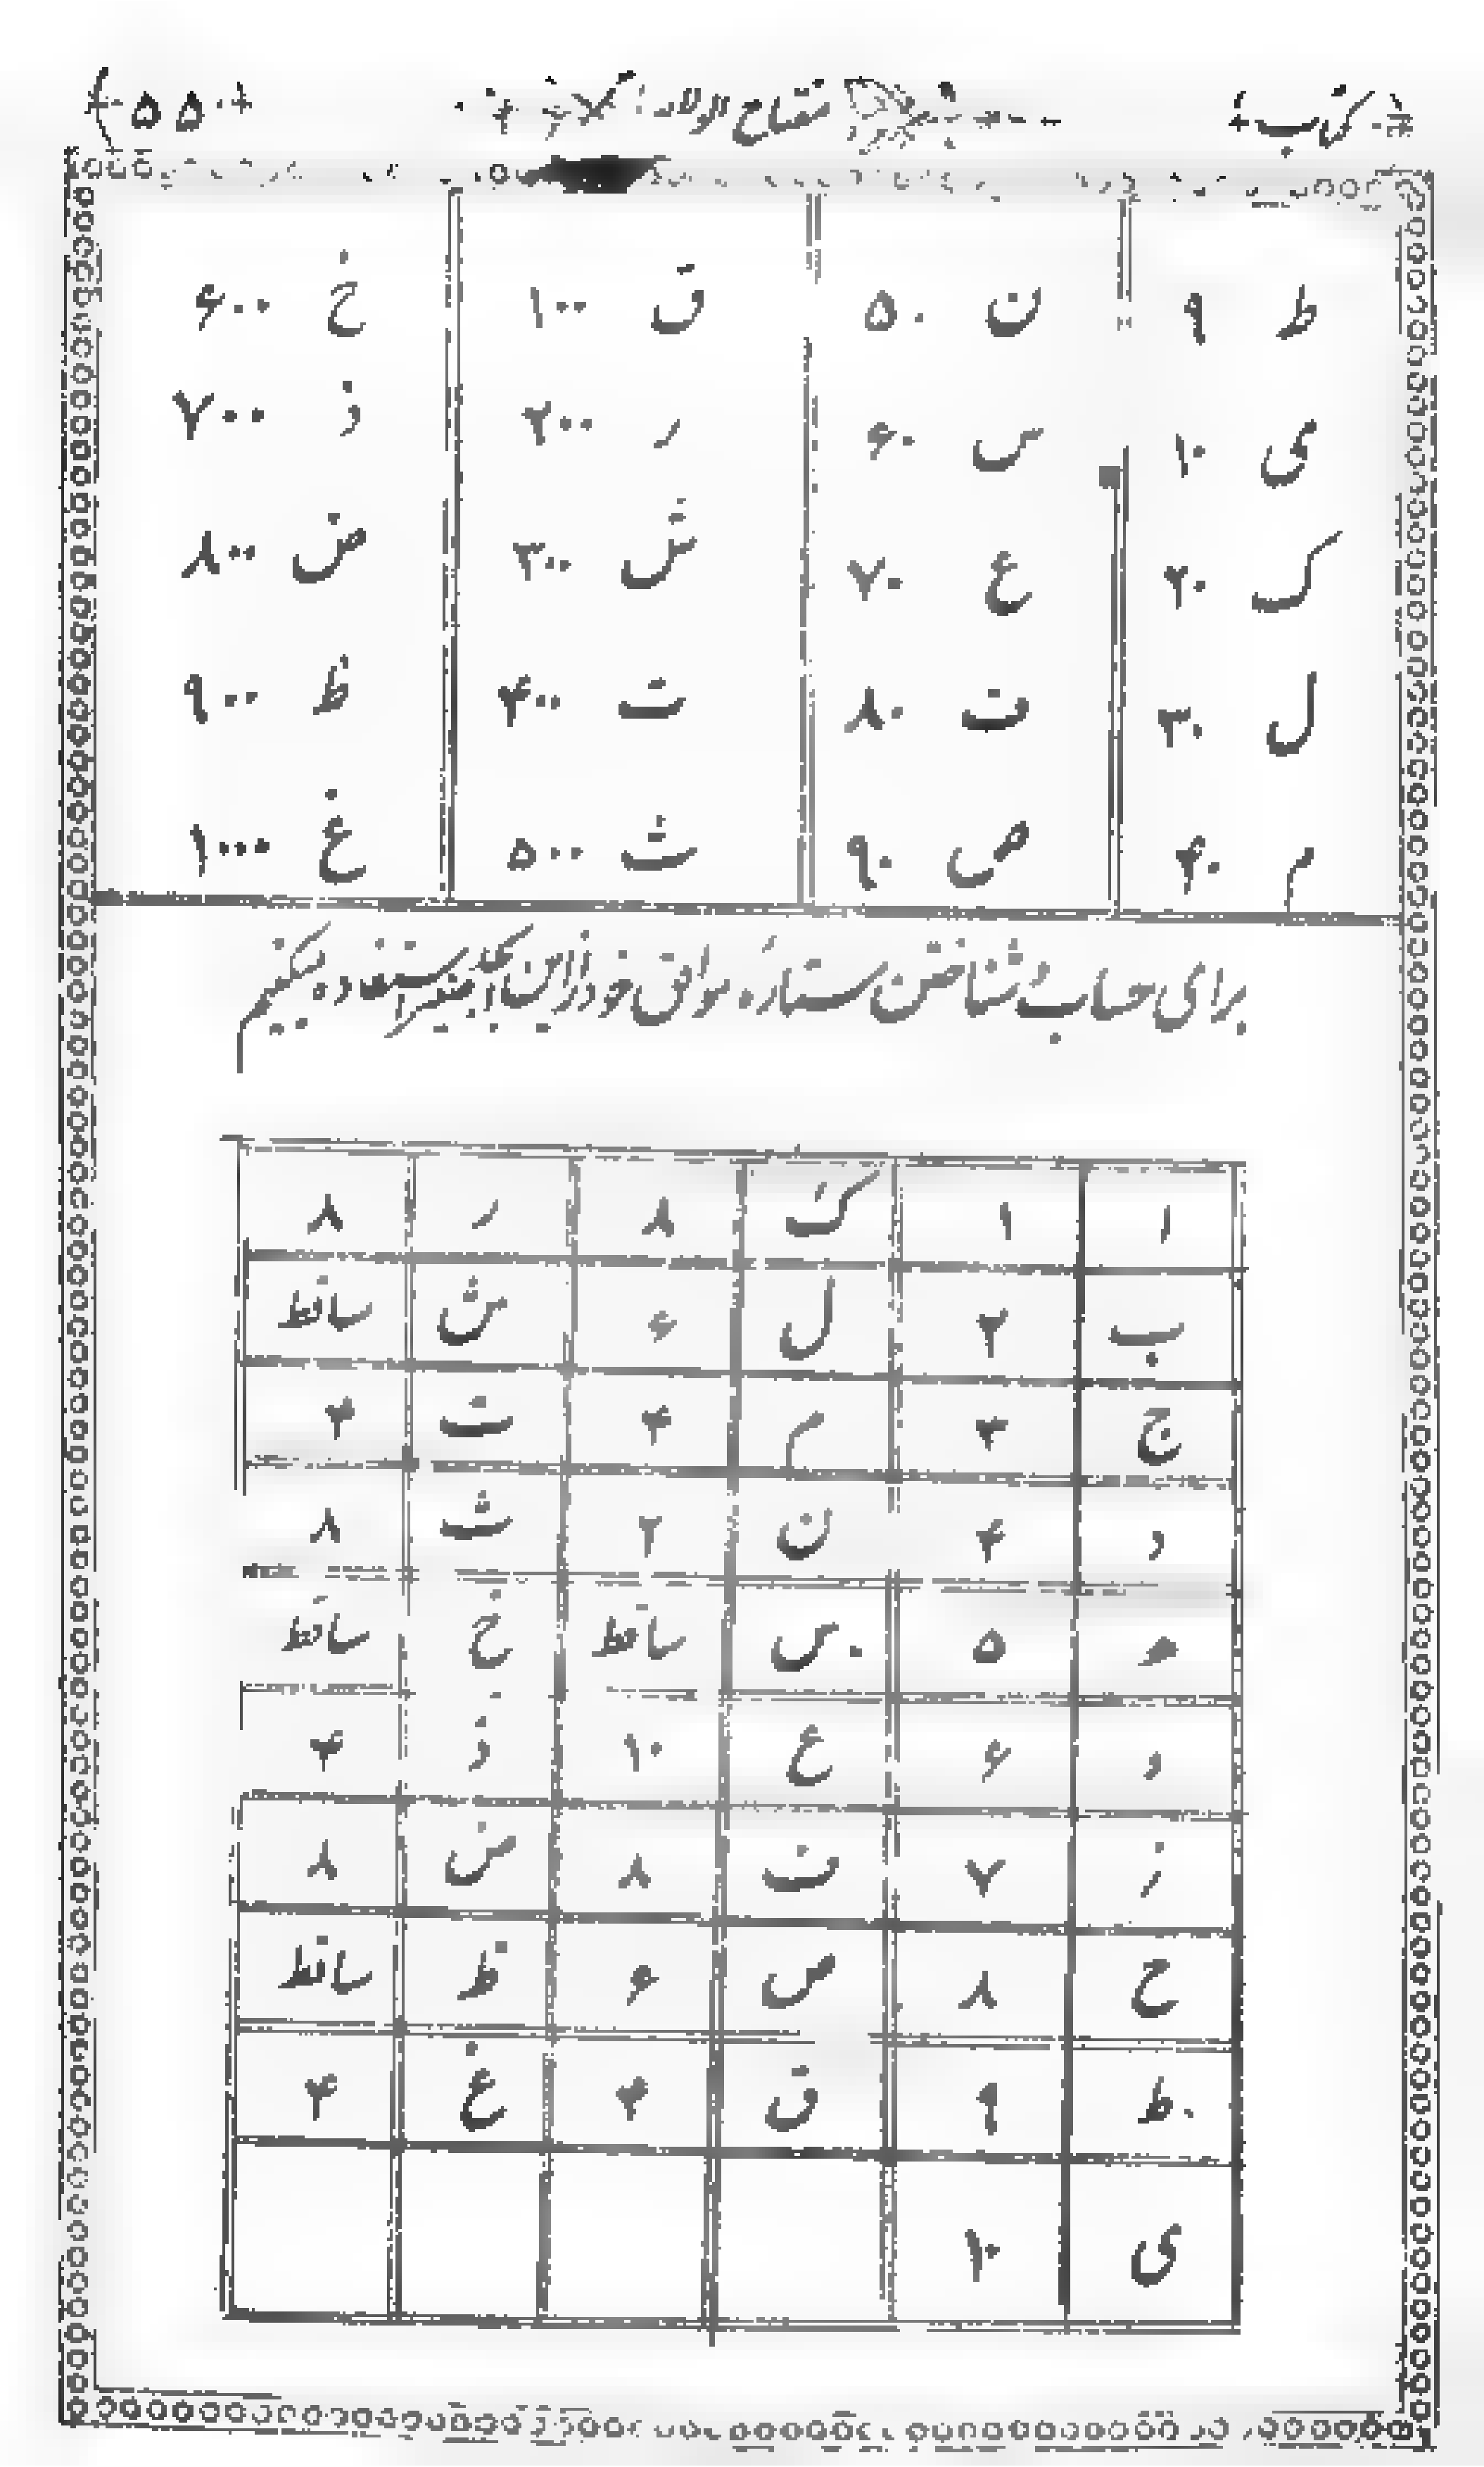 کتاب مفتاح الاولاد ۵۵
ط ۹ ن ۵۰ ق ۱۰۰ خ ۶۰۰
ی ۱۰ س ۶۰ ر ۲۰۰ ذ ۷۰۰
ک ۲۰ ع ۷۰ ش ۳۰۰ ض ۸۰۰
ل ۳۰ ف ۸۰ ت ۴۰۰ ظ ۹۰۰
م ۴۰ ص ۹۰ ث ۵۰۰ غ ۱۰۰۰
برای حساب و شناختن ستاره موافق خود از این استفاده میکنیم
ا ۱ ک ۸ ر ۸
ب ۲ ل ۶ ش ساقط
ج ۳ م ۴ ت ۴
د ۴ ن ۲ ث ۸
ه ۵ س ساقط خ ساقط
و ۶ ع ۱۰ ذ ۴
ز ۷ ف ۸ ض ۸
ح ۸ ص ۶ ظ ساقط
ط ۹ ق ۴ غ ۴
ی ۱۰